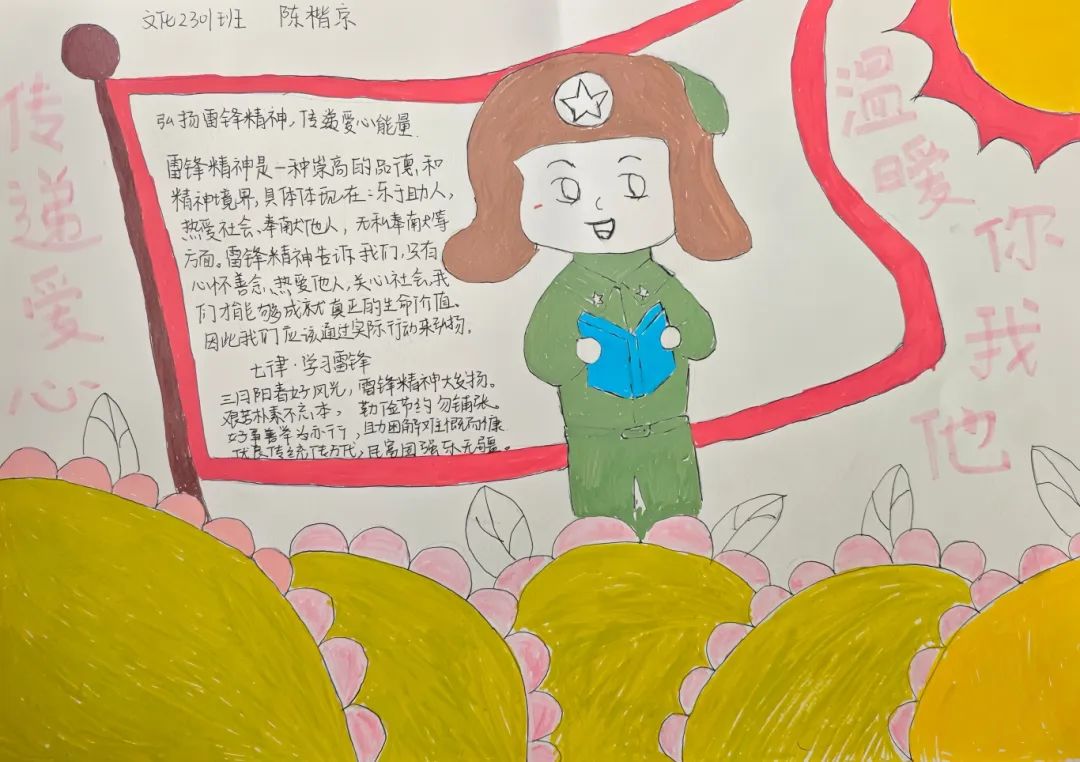 文化2301班 陈楷京
传递爱心
温暖你我他
弘扬雷锋精神,传递爱心能量
雷锋精神是一种崇高的品德和
精神境界,具体体现在:乐于助人,
热爱社会、奉献他人,无私奉献等
方面。雷锋精神告诉我们,没有
心怀善念、热爱他人,关心社会,我
们才能够成就真正的生命价值。
因此我们应该通过实际行动来弘扬。
七律·学习雷锋
三月阳春好风光,雷锋精神大发扬。
艰苦朴素不忘本,勤俭节约勿铺张。
好事善举为亦行,助困解难慨而慷
优良传统传万代,民富国强乐无疆。